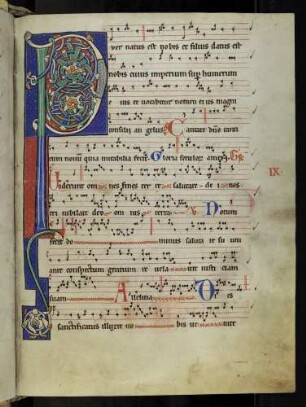 P uer natus est nobis et filius datus est
nobis cuius imperium sup humerum
ius et uocabitur nomen eius magni
consilij angelus Cantate dno canti
cum nouum quia mirabilia fecit Gloria seculorum amen
IX
Uiderunt omnes fines terre salutare dei nos
tri iubilate deo omnis terra Notum
fecit dominus salutare suum
ante conspectum gentium reuelauit iusticiam
suam Alleluia Dies
sanctificatus illuxit nobis uenite